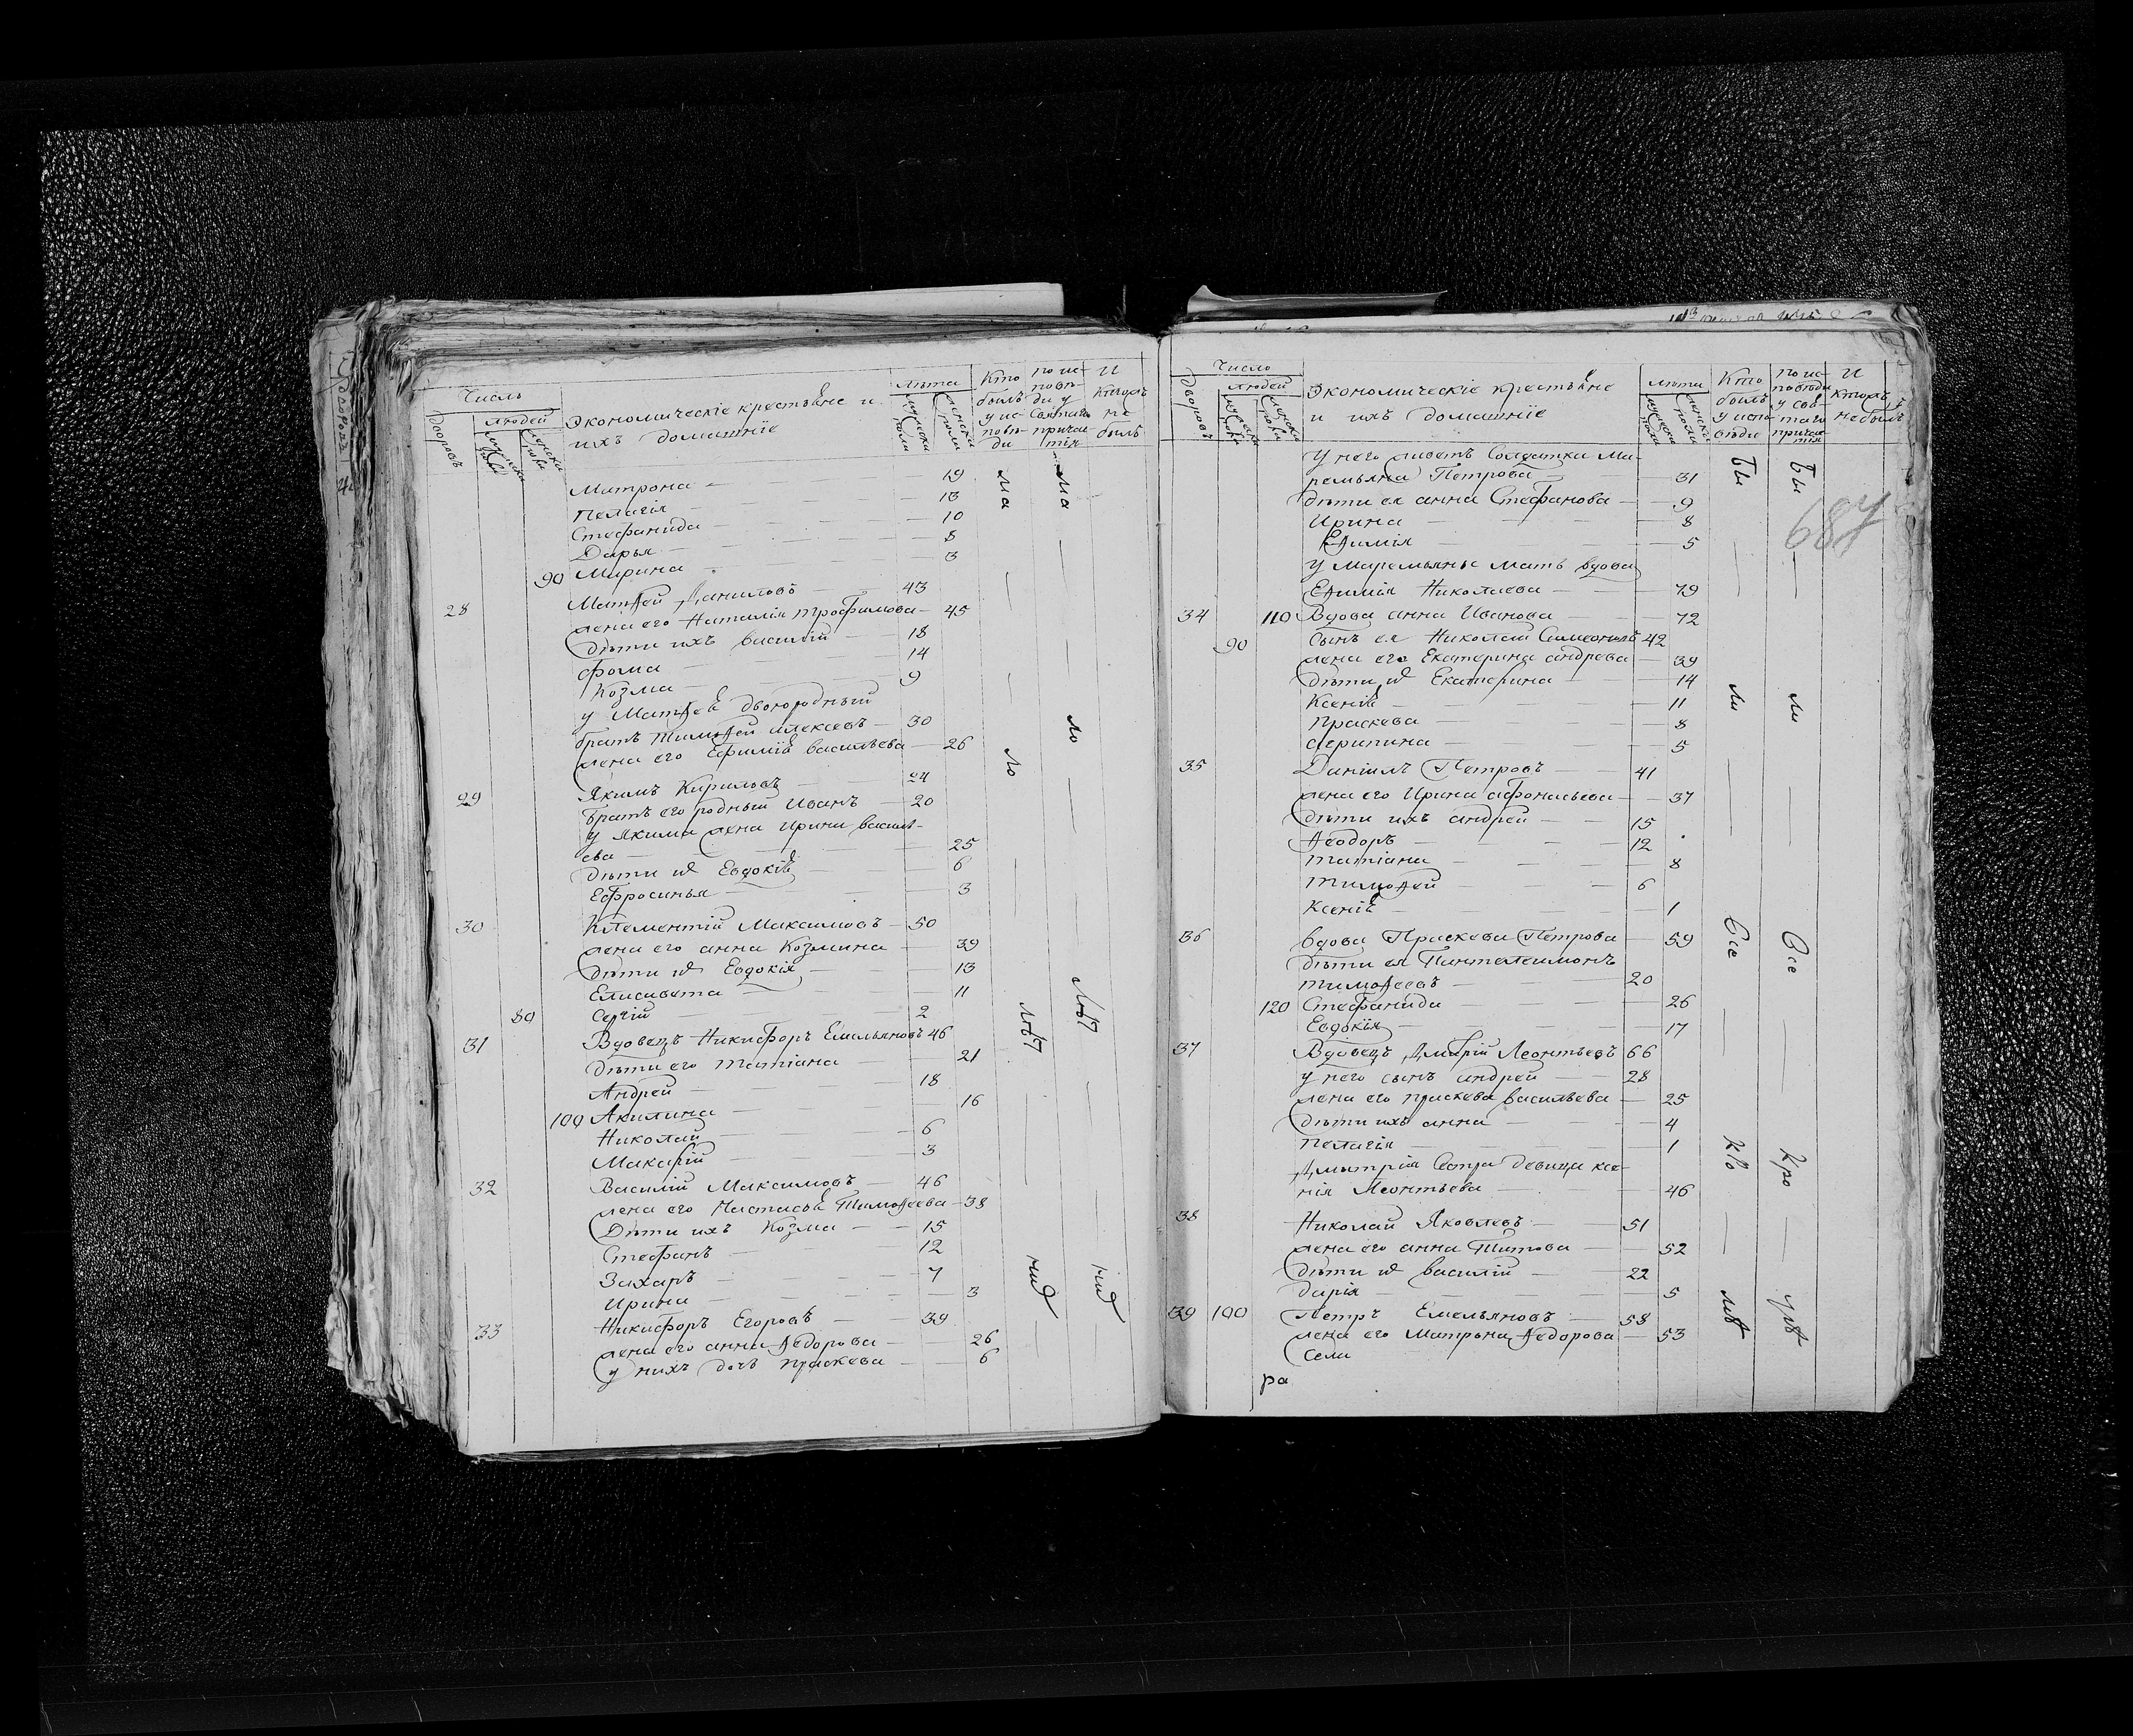 Число
людей
лѣта
Экономическіе крестьяне и
ихъ домашніе
Кто былъ у исповѣди
по исповѣди у святаго причастія
И кто не былъ
дворовъ
Матрона 19
Пелагія 13
Стефанида 10
Дарья 8
90 Марина 3
28 Матѳей Даниловъ 43
жена его Наталія Трофимова 45
Дѣти ихъ василій 18
Фома 14
Козма 9
у Матѳея двоюродный
братъ Тимоѳей алексеевъ 30
жена его Ефимія васильева 26
29 Якимъ Кириловъ 24
братъ его родный Иванъ 20
у Якима жена Ирина василь-
ева 25
дѣти их Евдокія 6
Ефросинья 3
30 Клементій Максимовъ 50
жена его анна Козмина 39
дѣти их Евдокія 13
Елисавета 11
89 Сергій 2
31 Вдовецъ Никифоръ Емельяновъ 46
дѣти его Татіана 21
Андрей 18
100 Акилина 16
Николай 6
Макарій 3
32 Василій Максимовъ 46
жена его Настасья Тимоѳеева 38
Дѣти ихъ Козма 15
Стефанъ 12
Захаръ 7
Ирина 3
33 Никифоръ Егоровъ 39
жена его анна Ѳедорова 26
у нихъ дочь праскева 6
Число
людей
дворовъ
Экономическіе крестьяне
и ихъ домашніе
лѣта
Кто былъ у исповѣди
по исповѣди у святаго причастія
И кто не былъ
687
У него живетъ Солдатка Ма-
ремьяна Петрова 31
дѣти ея анна Стефанова 9
Ирина 8
Еѳимія 5
У Маремьяны мать вдова
Еѳимія Николаева 79
34 110 Вдова анна Иванова 72
90 Сынъ ея Николай Симеоновъ 42
жена его Екатерина андреева 39
Дѣти их Екатерина 14
Ксенія 11
праскева 8
агрипина 5
35 Даніилъ Петровъ 41
жена его Ирина афонасьева 37
дѣти ихъ андрей 15
Ѳеодоръ 12
татіана 8
тимоѳей 6
Ксенія 1
36 вдова Праскева Петрова 59
дѣти ея Пантелеимонъ
тимоѳеевъ 20
120 Стефанида 26
Евдокія 17
37 Вдовецъ Дмитрій Леонтьевъ 66
у него сынъ андрей 28
жена его праскева васильева 25
дѣти ихъ анна 4
пелагія 1
Дмитрія Сестра девица ксе-
нія Леонтьева 46
38 Николай Яковлевъ 51
жена его анна Титова 52
дѣти их василій 22
дарія 5
39 100 Петръ Емельяновъ 58
жена его Матрона Ѳедорова 53
Села
ра